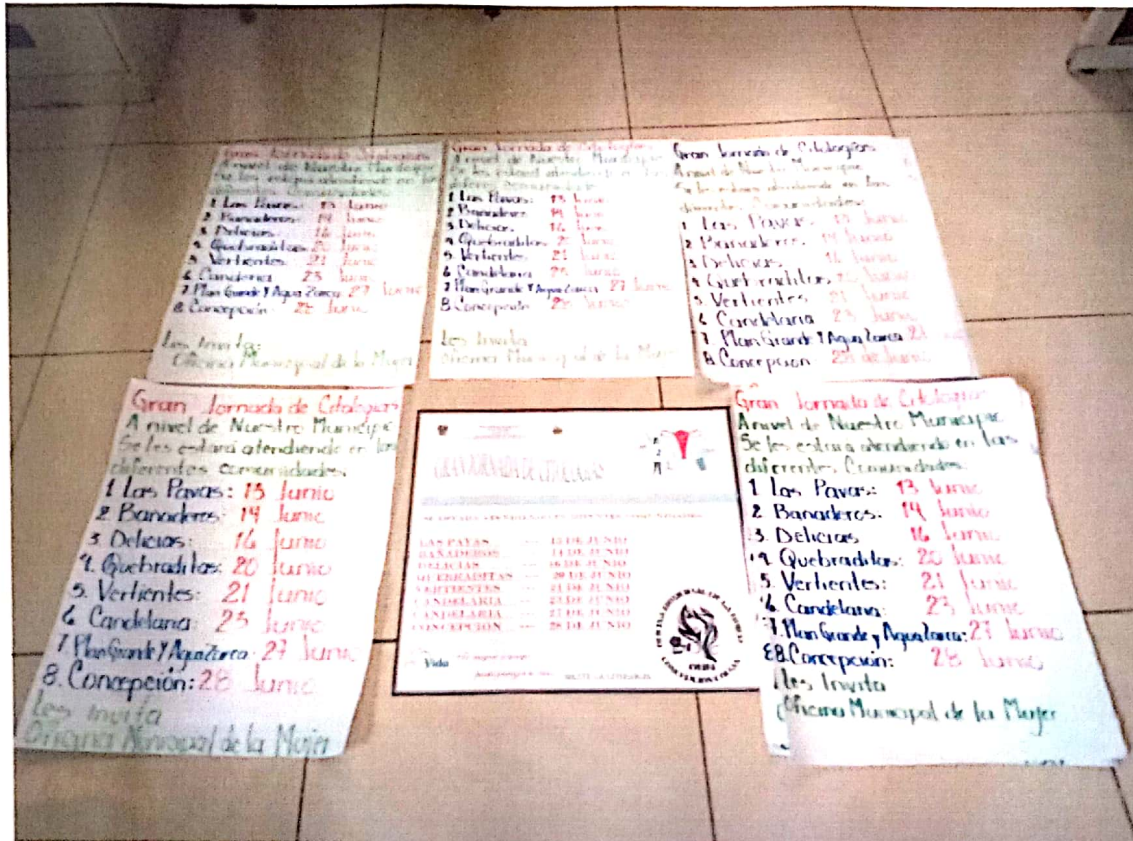 Gran Jornada de Citologias
A nivel de Nuestro Municipio
Se les estara atendiendo en las
diferentes Comunidades:
1 Las Pavas: 13 Junio
2 Banaderos: 14 Junio
3 Delicias: 16 Junio
4 Quebraditas: 20 Junio
5 Vertientes: 21 Junio
6 Candelaria 23 Junio
7 Plan Grande Y Agua Zarca 27 Junio
8 Concepción: 28 Junio
Les Invita:
Oficina Municipal de la Mujer
Gran Jornada de Citologias
A nivel de Nuestro Municipio
Se les estará atendiendo en las
1 Las Pavas: 13 Junio
2 Banaderos 14 Junio
3 Delicias 16 Junio
4 Quebraditas 20 Junio
5 Vertientes 21 Junio
6 Candelaria 23 Junio
7 Plan Grande Y Agua Zarca 27 Junio
8 Concepción: 28 Junio
Les Invita
Oficina Municipal de la Mujer
Gran Jornada de Citologías
A nivel de Nuestro Municipio
Se les estara atendiendo en las
diferentes Comunidades:
1 Las Pavas: Junio
2 Banaderos 14 Junio
3 Delicias 16 Junio
4 Quebraditas Junio
5 Vertientes 21 Junio
6 Candelaria 23 Junio
7. Plan Grande Y Agua Zarca 27
8. Concepcion 28 de Junio
Gran Jornada de Citologias
A nivel de Nuestro Municipio
Se les estará atendiendo en las
diferentes comunidades.
1 Las Pavas: 13 Junio
2 Banaderos: 14 Junio
3. Delicias: 16 Junio
4. Quebraditas: 20 Junio
5. Vertientes: 21 Junio
6 Candelaria: 23 Junio
7. Plan Grande Y Agua Zarca: 27 Junio
8. Concepción: 28 Junio
Les Invita
Oficina Municipal de la Mujer
GRAN JORNADA DE CITOLOGIAS
LAS PAVAS --- 13 DE JUNIO
BAÑADEROS --- 14 DE JUNIO
DELICIAS --- 16 DE JUNIO
QUEBRADITAS --- 20 DE JUNIO
VERTIENTES --- 21 DE JUNIO
CANDELARIA --- 23 DE JUNIO
CANDELARIA --- 27 DE JUNIO
CONCEPCION --- 28 DE JUNIO
Vida
Gran Jornada de Citologias
A nivel de Nuestro Municipio
Se les estara atendiendo en las
diferentes Comunidades:
1 Las Pavas: 13 Junio
2 Banaderos: 14 Junio
3. Delicias 16 Junio
4. Quebraditas: 20 Junio
5. Vertientes: 21 Junio
6. Candelaria: 23 Junio
7. Plan Grande y Agua Zarca: 27 Junio
8. Concepción: 28 Junio
Les Invita
Oficina Municipal de la Mujer